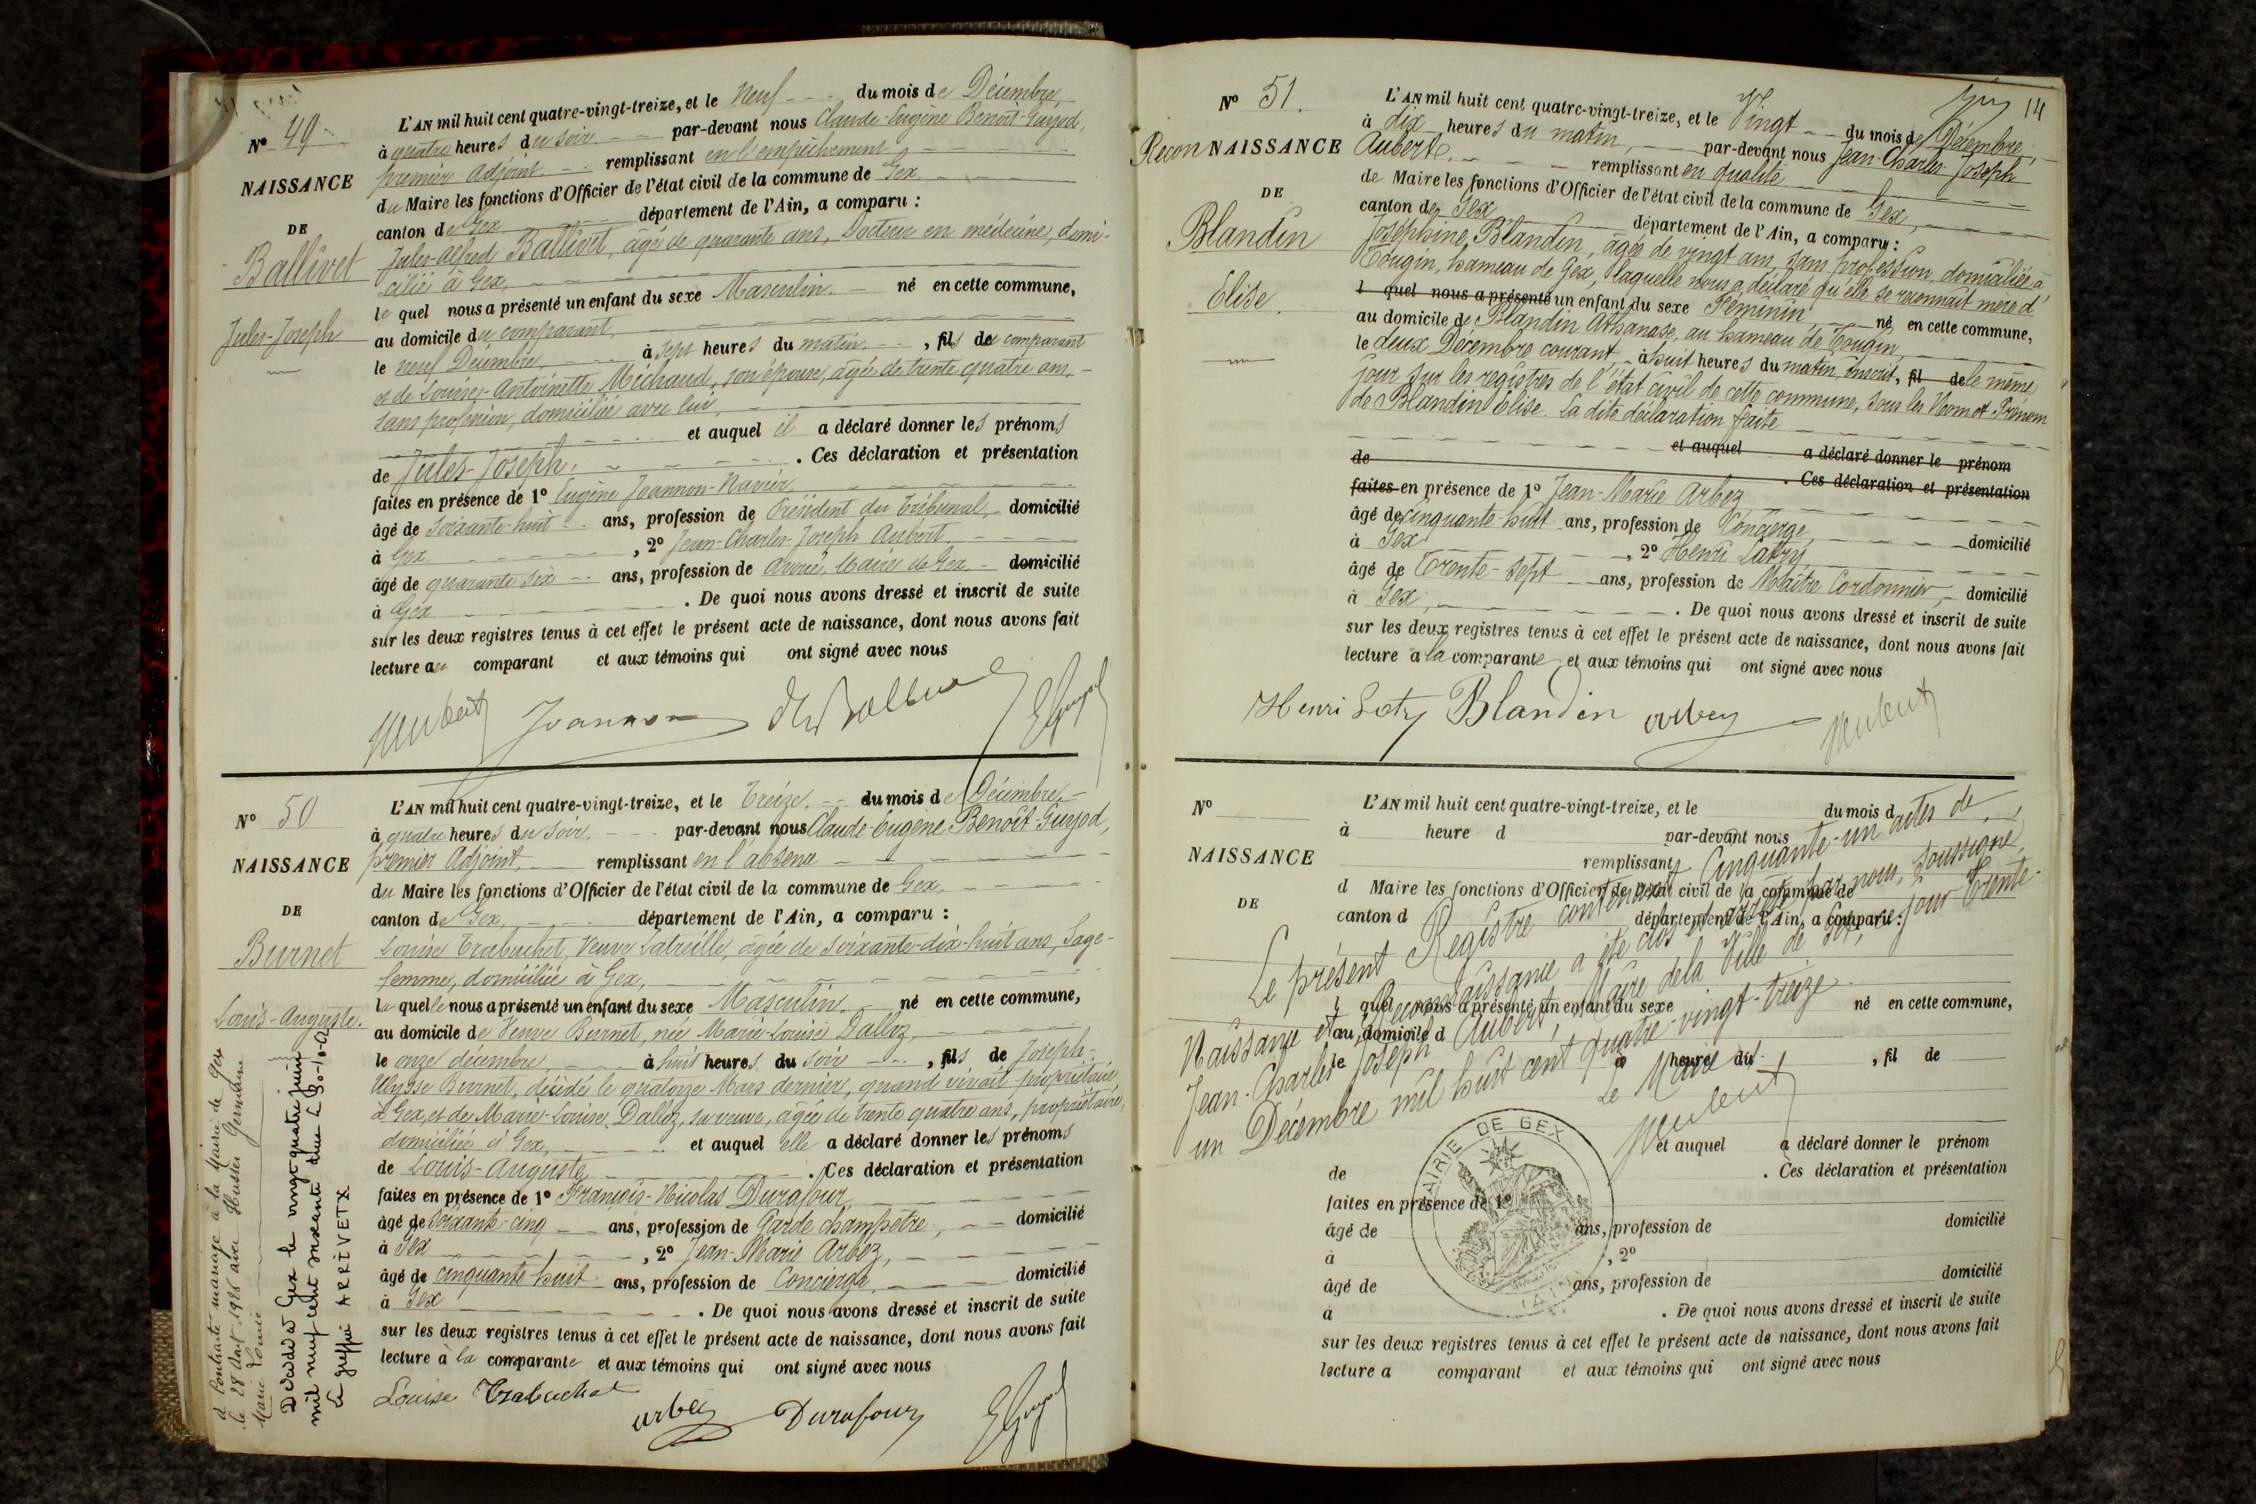 N° 49
NAISSANCE
DE
Ballivet
Jules-Joseph
L'AN mil huit cent quatre-vingt-treize, et le neuf du mois de Décembre
à quatre heures du soir par-devant nous Claude-Eugène Benoît-Guyod,
premier Adjoint remplissant en l'empêchement
du Maire les fonctions d'Officier de l'état civil de la commune de Gex,
canton de Gex département de l'Ain, a comparu :
Jules-Alfred Ballivet, âgé de quarante ans, Docteur en médecine, domi-
cilié à Gex,
lequel nous a présenté un enfant du sexe Masculin, né en cette commune,
au domicile du comparant,
le neuf Décembre, à sept heures du matin, fils du comparant
et de Louise-Antoinette Michaud, son épouse, âgée de trente quatre ans,
sans profession, domiciliée avec lui,
et auquel il a déclaré donner les prénoms
de Jules-Joseph. Ces déclaration et présentation
faites en présence de 1° Eugène Joannon-Navier
âgé de soixante-huit ans, profession de Président du Tribunal, domicilié
à Gex, 2° Jean-Charles-Joseph Aubert,
âgé de quarante six ans, profession de avoué, Maire de Gex, domicilié
à Gex. De quoi nous avons dressé et inscrit de suite
sur les deux registres tenus à cet effet le présent acte de naissance, dont nous avons fait
lecture au comparant et aux témoins qui ont signé avec nous
Aubert Joannon Ballivet EGuyod
N° 50
NAISSANCE
DE
Burnet
Louis-Auguste.
a Contracté mariage à la Mairie de Gex
le 28 Oct. 1926 avec Husser Germaine
Marie Louise
Décédé à Gex le vingt quatre juin
mil neuf cent soixante deux
Le greffier ARRIVETX
L'AN mil huit cent quatre-vingt-treize, et le Treize, du mois de Décembre,
à quatre heures du soir, par-devant nous Claude-Eugène Benoît-Guyod,
premier Adjoint, remplissant en l'absence
du Maire les fonctions d'Officier de l'état civil de la commune de Gex,
canton de Gex, département de l'Ain, a comparu :
Louise Trabuchet, Veuve Latreille, âgée de soixante-dix-huit ans, Sage-
femme, domiciliée à Gex,
laquelle nous a présenté un enfant du sexe Masculin, né en cette commune,
au domicile de Veuve Burnet, née Marie-Louise Dalloz,
le onze décembre à huit heures du soir, fils de Joseph-
Ulysse Burnet, décédé le quatorze Mars dernier, quand vivait propriétaire
à Gex, et de Marie-Louise Dalloz, sa veuve, âgée de trente quatre ans, propriétaire,
domiciliée à Gex, et auquel elle a déclaré donner les prénoms
de Louis-Auguste. Ces déclaration et présentation
faites en présence de 1° François-Nicolas Durafour,
âgé de soixante-cinq ans, profession de Garde champêtre, domicilié
à Gex, 2° Jean-Marie Arbez,
âgé de cinquante huit ans, profession de Concierge, domicilié
à Gex. De quoi nous avons dressé et inscrit de suite
sur les deux registres tenus à cet effet le présent acte de naissance, dont nous avons fait
lecture à la comparante et aux témoins qui ont signé avec nous
Louise Trabuchet
arbez Durafour EGuyod
14
N° 51.
ReconNAISSANCE
DE
Blandin
Elise.
L'AN mil huit cent quatre-vingt-treize, et le Vingt du mois de Décembre,
à dix heures du matin, par-devant nous Jean-Charles-Joseph
Aubert, remplissant en qualité
de Maire les fonctions d'Officier de l'état civil de la commune de Gex,
canton de Gex département de l'Ain, a comparu :
Joséphine Blandin, âgée de vingt ans, sans profession, domiciliée à
Tougin, hameau de Gex, laquelle nous a déclaré qu'elle se reconnaît mère d'
l quel nous a présenté un enfant du sexe Féminin né en cette commune,
au domicile de Blandin Athanase, au hameau de Tougin,
le deux Décembre courant, à huit heures du matin, inscrit, fil de le même
jour sur les registres de l'état civil de cette commune, sous les Nom et Prénom
de Blandin Elise. La dite déclaration faite
et auquel a déclaré donner le prénom
de . Ces déclaration et présentation
faites en présence de 1° Jean-Marie Arbez
âgé de cinquante-huit ans, profession de Concierge, domicilié
à Gex, 2° Henri Latzy
âgé de Trente-sept ans, profession de Maître Cordonnier, domicilié
à Gex, . De quoi nous avons dressé et inscrit de suite
sur les deux registres tenus à cet effet le présent acte de naissance, dont nous avons fait
lecture à la comparante et aux témoins qui ont signé avec nous
Henri Blandin arbez Aubert
N°
NAISSANCE
DE
L'AN mil huit cent quatre-vingt-treize, et le du mois d
à heure d par-devant nous
remplissant
d Maire les fonctions d'Officier de l'état civil de la commune de
canton d département de l'Ain, a comparu :
l quel nous a présenté un enfant du sexe né en cette commune,
au domicile d
le à heure du , fil de
et auquel a déclaré donner le prénom
de . Ces déclaration et présentation
faites en présence de 1°
âgé de ans, profession de domicilié
à , 2°
âgé de ans, profession de domicilié
à . De quoi nous avons dressé et inscrit de suite
sur les deux registres tenus à cet effet le présent acte de naissance, dont nous avons fait
lecture a comparant et aux témoins qui ont signé avec nous
Le présent Registre contenant Cinquante-un actes de
Naissance et Reconnaissance a été clos et arrêté par nous, soussigné,
Jean-Charles-Joseph Aubert, Maire de la Ville de Gex, ce jour Trente-
un Décembre mil huit cent quatre-vingt-treize
Le Maire
Aubert
MAIRIE DE GEX
(AIN)